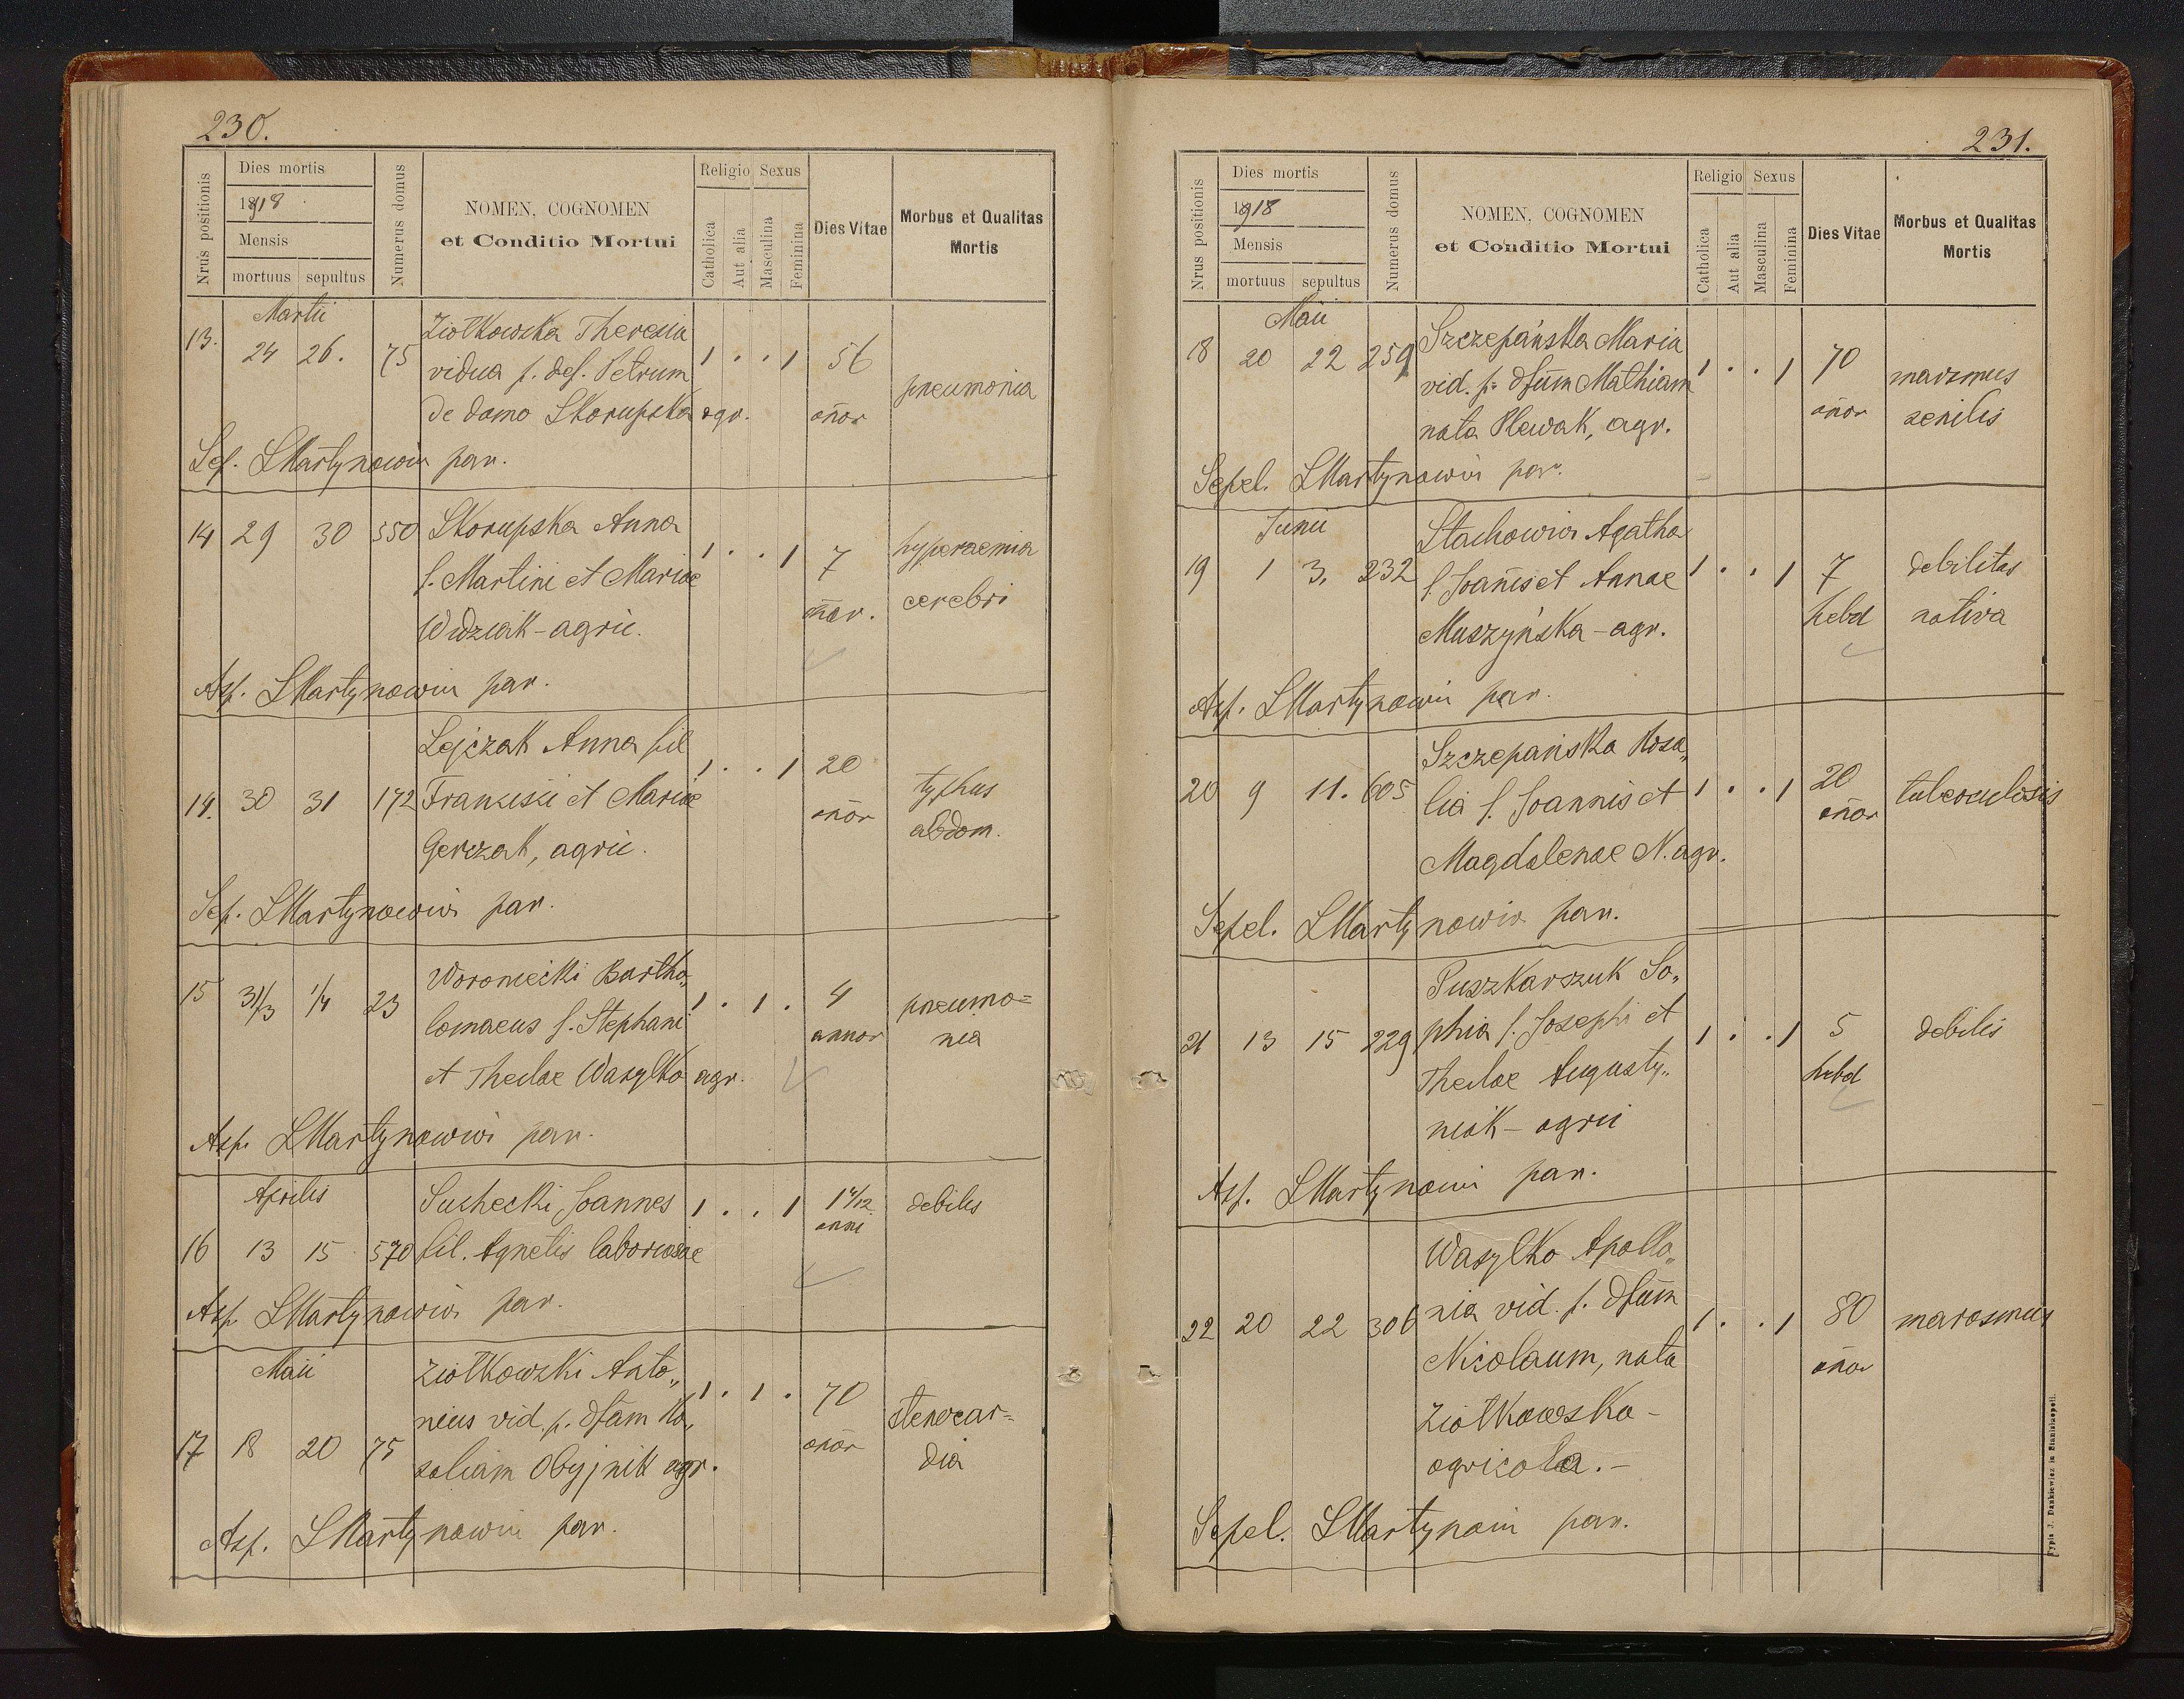 230.
Nrus positionis
Dies mortis
1918
Mensis
mortuus sepultus
Numerus domus
NOMEN, COGNOMEN
et Conditio Mortui
Religio Sexus
Catholica
Aut alia
Masculina
Feminina
Dies Vitae
Morbus et Qualitas
Mortis
Martii
13. 24 26. 75 Ziołkowska Theresia 1 . . 1 56 pneumonia
vidua p. def. Petrum
de domo Skorupska agr. añor
Sep. SMartynowicz par.
14 29 30 550 Skorupska Anna 1 . . 1 7 hyperaemia
f. Martini et Mariae
Widziak - agric. añor. cerebri
Asp. SMartynowicz par.
Lejczak Anna fil
14. 30 31 172 Francisci et Mariae 1 . . 1 20 typhus
añor abdom.
Gerczak, agric.
Sep. SMartynowicz par.
15 31/3 1/4 23 Woroniecki Bartho„ 1 . 1 . 4 pneumo=
lomaeus f. Stephani
annor nia
et Theclae Wasylko agr.
Asp. SMartynowicz par.
Aprilis
Suchecki Joannes 1 . . 1 1 4/12 debilis
anni
16 13 15 570 fil. Agnetis laboriosae
Asp. SMartynowicz par.
Maii
Ziołkowski Anto„ 1 . 1 . 70 stenocar=
nius vid. p. dfãm Ro„
17 18 20 75 saliam Obyjnik agr. añor dia
Asp. SMartynowicz par.
231.
Nrus positionis
Dies mortis
1918
Mensis
mortuus sepultus
Numerus domus
NOMEN, COGNOMEN
et Conditio Mortui
Religio Sexus
Catholica
Aut alia
Masculina
Feminina
Dies Vitae
Morbus et Qualitas
Mortis
Maii
18 20 22 259 Szczepańska Maria 1 . . 1 70 marasmus
vid. p. dfũm Mathiam
añor senilis
nata Plewak, agr.
Sepel. SMartynowicz par.
Junii
Stachowicz Agatha
19 1 3. 232 f. Joañis et Annae 1 . . 1 7 debilitas
Muszyńska - agr. hebd nativa
Asp. SMartynowicz par.
Szczepańska Rosa„
20 9 11. 605 lia f. Joannis et 1 . . 1 20 tuberculosis
añor
Magdalenae N. agr.
Sepel. SMartynowicz par.
Puszkarszuk So„
21 13 15 229 phia f. Josephi et 1 . . 1 5 debilis
Theclae Augusty„ hebd
niak - agric
Asp. SMartynowicz par.
Wasylko Apollo„
22 20 22 306 nia vid. p. dfũm 1 . . 1 80 marasmus
Nicolaum, nata añor
Ziołkowska -
agricola. -
Sepel. SMartynowicz par.
Typis J. Dankiewicz in Stanislaopoli.